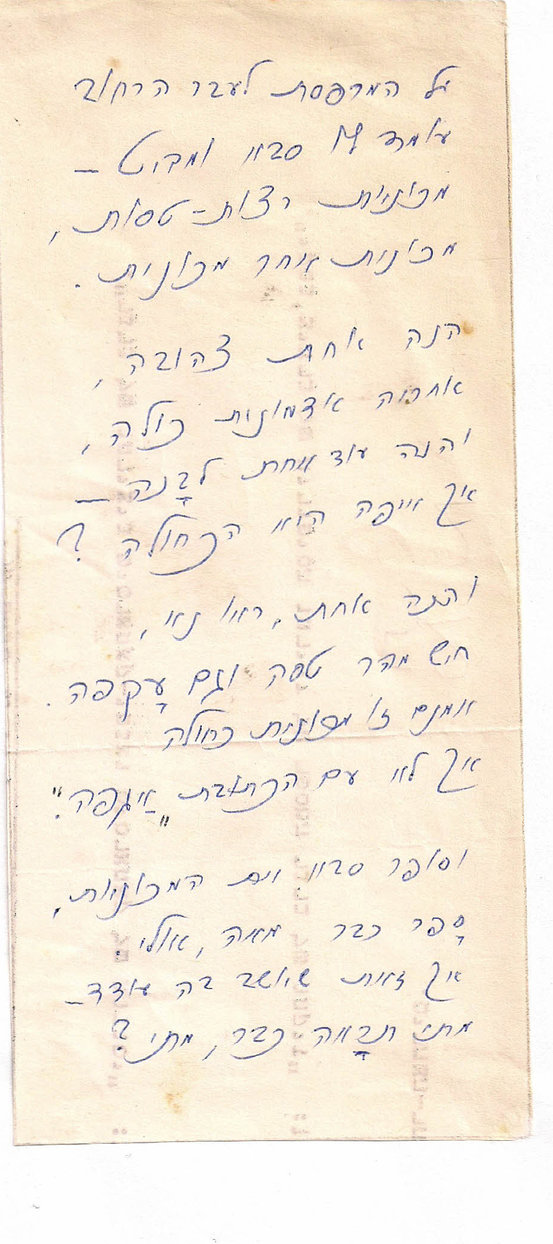 על המרפסת לעבר הרחוב
עומד לו סבא ומביט –
מכוניות רצות-טסות,
מכונית אחר מכונית.
הנה אחת צהובה,
אחרת אדמונית כולה,
והנה עוד אחת לבָנה –
אך אייפה היא הכחולה?
והנה אחת, ראו נא,
חיש מהר טסה וגם עָקפה.
אומנם זו מכונית כחולה
אך לא עם הכתובת "איגפה".
וסופר סבא את המכוניות,
סָפר כבר מאה, אולי.
אך זאת שיושב בה עודד –
מתי תבָואה כבר, מתי?